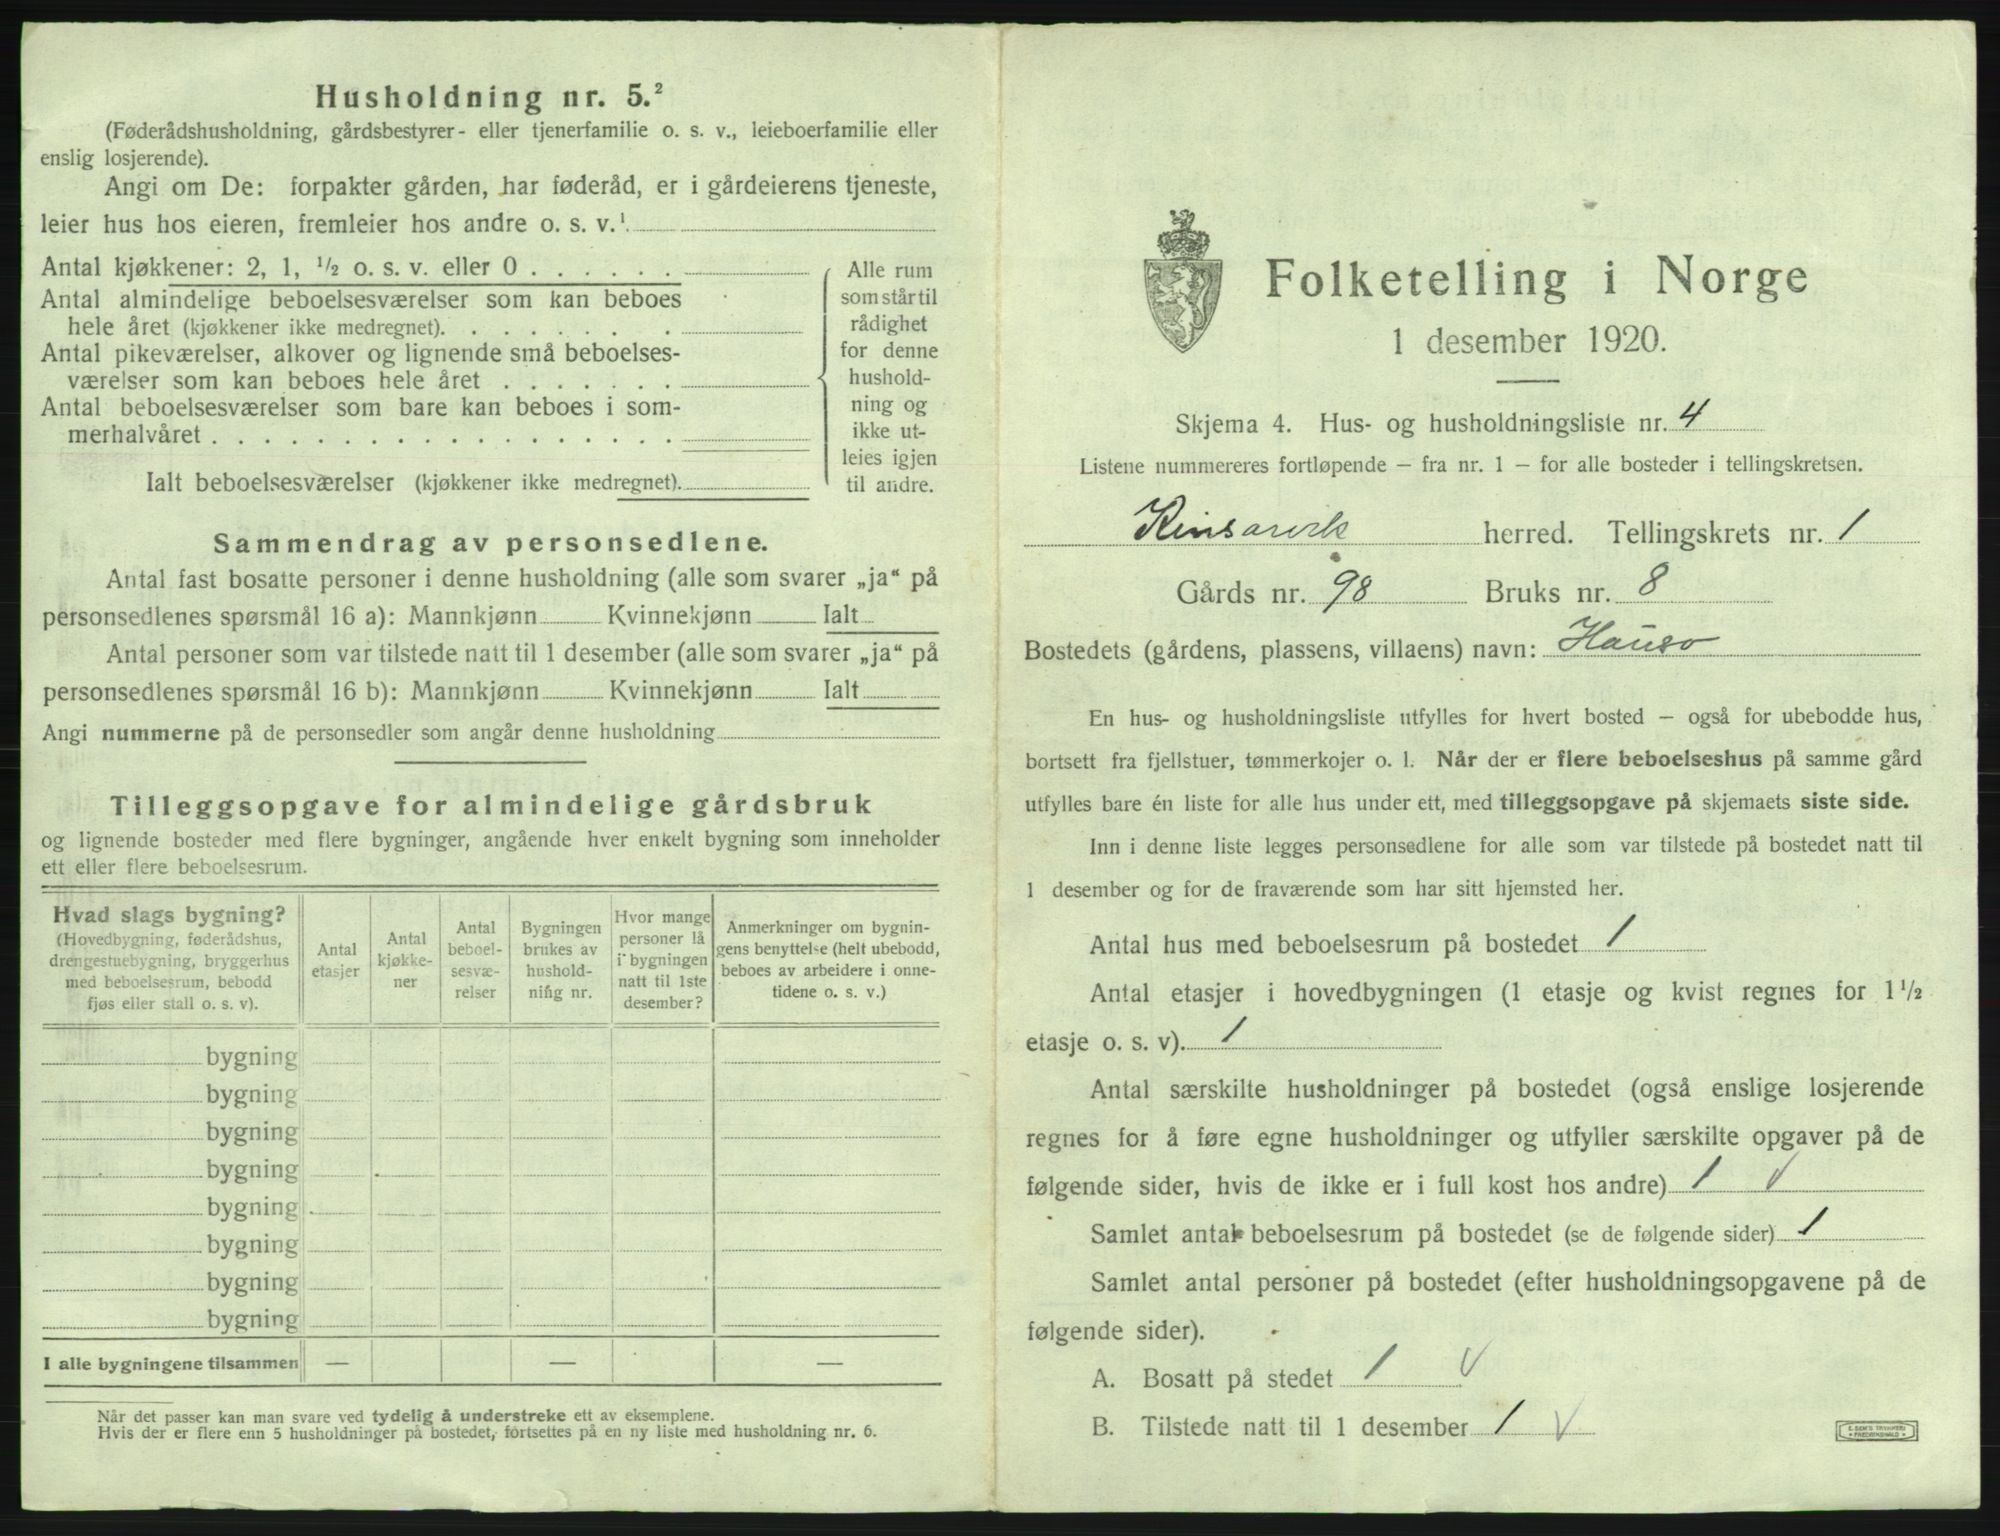 Husholdning nr. 5.²
(Føderådshusholdning, gårdsbestyrer- eller tjenerfamilie o. s. v., leieboerfamilie eller
enslig losjerende).
Angi om De: forpakter gården, har føderåd, er i gårdeierens tjeneste,
leier hus hos eieren, fremleier hos andre o. s. v.¹
Antal kjøkkener: 2, 1, ½ o. s. v. eller 0 . . . . . .
Antal almindelige beboelsesværelser som kan beboes
hele året (kjøkkener ikke medregnet). . . . . . . .
Antal pikeværelser, alkover og lignende små beboelses-
værelser som kan beboes hele året . . . . . . .
Antal beboelsesværelser som bare kan beboes i som-
merhalvåret . . . . . . . . . . . . . . . . . .
Ialt beboelsesværelser (kjøkkener ikke medregnet).
Alle rum
som står til
rådighet
for denne
hushold-
ning og
ikke ut-
leies igjen
til andre.
Sammendrag av personsedlene.
Antal fast bosatte personer i denne husholdning (alle som svarer „ja“ på
personsedlenes spørsmål 16 a): Mannkjønn Kvinnekjønn Ialt
Antal personer som var tilstede natt til 1 desember (alle som svarer „ja“ på
personsedlenes spørsmål 16 b): Mannkjønn Kvinnekjønn Ialt
Angi nummerne på de personsedler som angår denne husholdning
Tilleggsopgave for almindelige gårdsbruk
og lignende bosteder med flere bygninger, angående hver enkelt bygning som inneholder
ett eller flere beboelsesrum.
Hvad slags bygning?
(Hovedbygning, føderådshus,
drengestuebygning, bryggerhus
med beboelsesrum, bebodd
fjøs eller stall o. s. v).
Antal
etasjer
Antal
kjøkke-
ner
Antal
beboel-
sesvæ-
relser
Bygningen
brukes av
hushold-
ning nr.
Hvor mange
personer lå
i bygningen
natt til 1ste
desember?
Anmerkninger om bygnin-
gens benyttelse (helt ubebodd,
beboes av arbeidere i onne-
tidene o. s. v.)
bygning
bygning
bygning
bygning
bygning
bygning
bygning
bygning
I alle bygningene tilsammen — — —
Når det passer kan man svare ved tydelig å understreke ett av eksemplene.
Hvis der er flere enn 5 husholdninger på bostedet, fortsettes på en ny liste med husholdning nr. 6.
Folketelling i Norge
1 desember 1920.
Skjema 4. Hus- og husholdningsliste nr. 4
Listene nummereres fortløpende – fra nr. 1 – for alle bosteder i tellingskretsen.
Kinsarvik herred. Tellingskrets nr. 1
Gårds nr. 98 Bruks nr. 8
Bostedets (gårdens, plassens, villaens) navn: Hauso
En hus- og husholdningsliste utfylles for hvert bosted – også for ubebodde hus,
bortsett fra fjellstuer, tømmerkojer o. l. Når der er flere beboelseshus på samme gård
utfylles bare én liste for alle hus under ett, med tilleggsopgave på skjemaets siste side.
Inn i denne liste legges personsedlene for alle som var tilstede på bostedet natt til
1 desember og for de fraværende som har sitt hjemsted her.
Antal hus med beboelsesrum på bostedet 1
Antal etasjer i hovedbygningen (1 etasje og kvist regnes for 1½
etasje o. s. v). 1
Antal særskilte husholdninger på bostedet (også enslige losjerende
regnes for å føre egne husholdninger og utfyller særskilte opgaver på de
følgende sider, hvis de ikke er i full kost hos andre) 1 V
Samlet antal beboelsesrum på bostedet (se de følgende sider) 1
Samlet antal personer på bostedet (efter husholdningsopgavene på de
følgende sider).
A. Bosatt på stedet 1 V
B. Tilstede natt til 1 desember 1 V